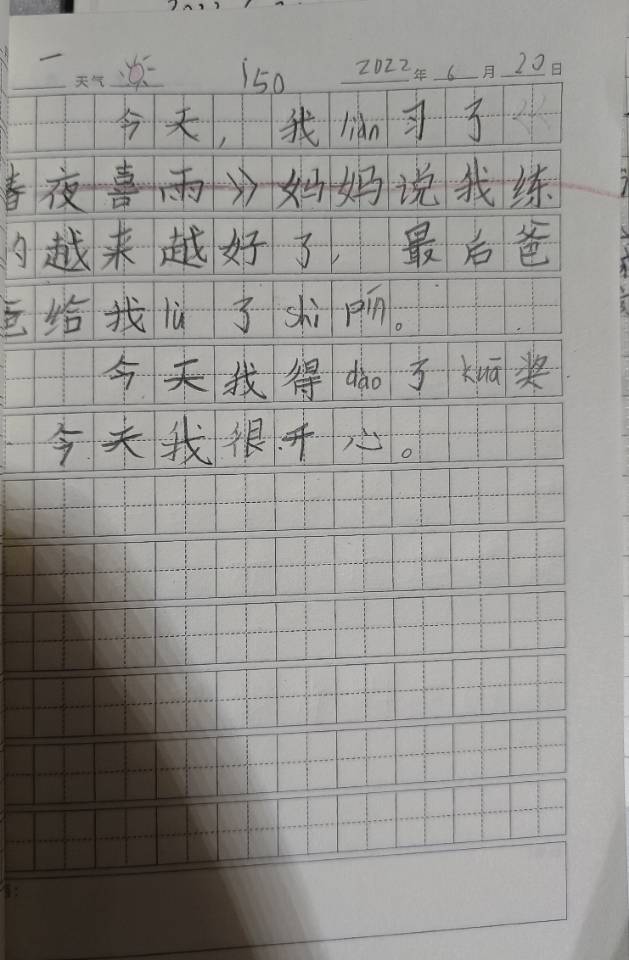 一 天气 150 2022年 6月 20日
今天，我liàn习了《
春夜喜雨》妈妈说我练
的越来越好了，最后爸
爸给我lù了shì pín。
今天我得dào了kuā奖
今天我很开心。